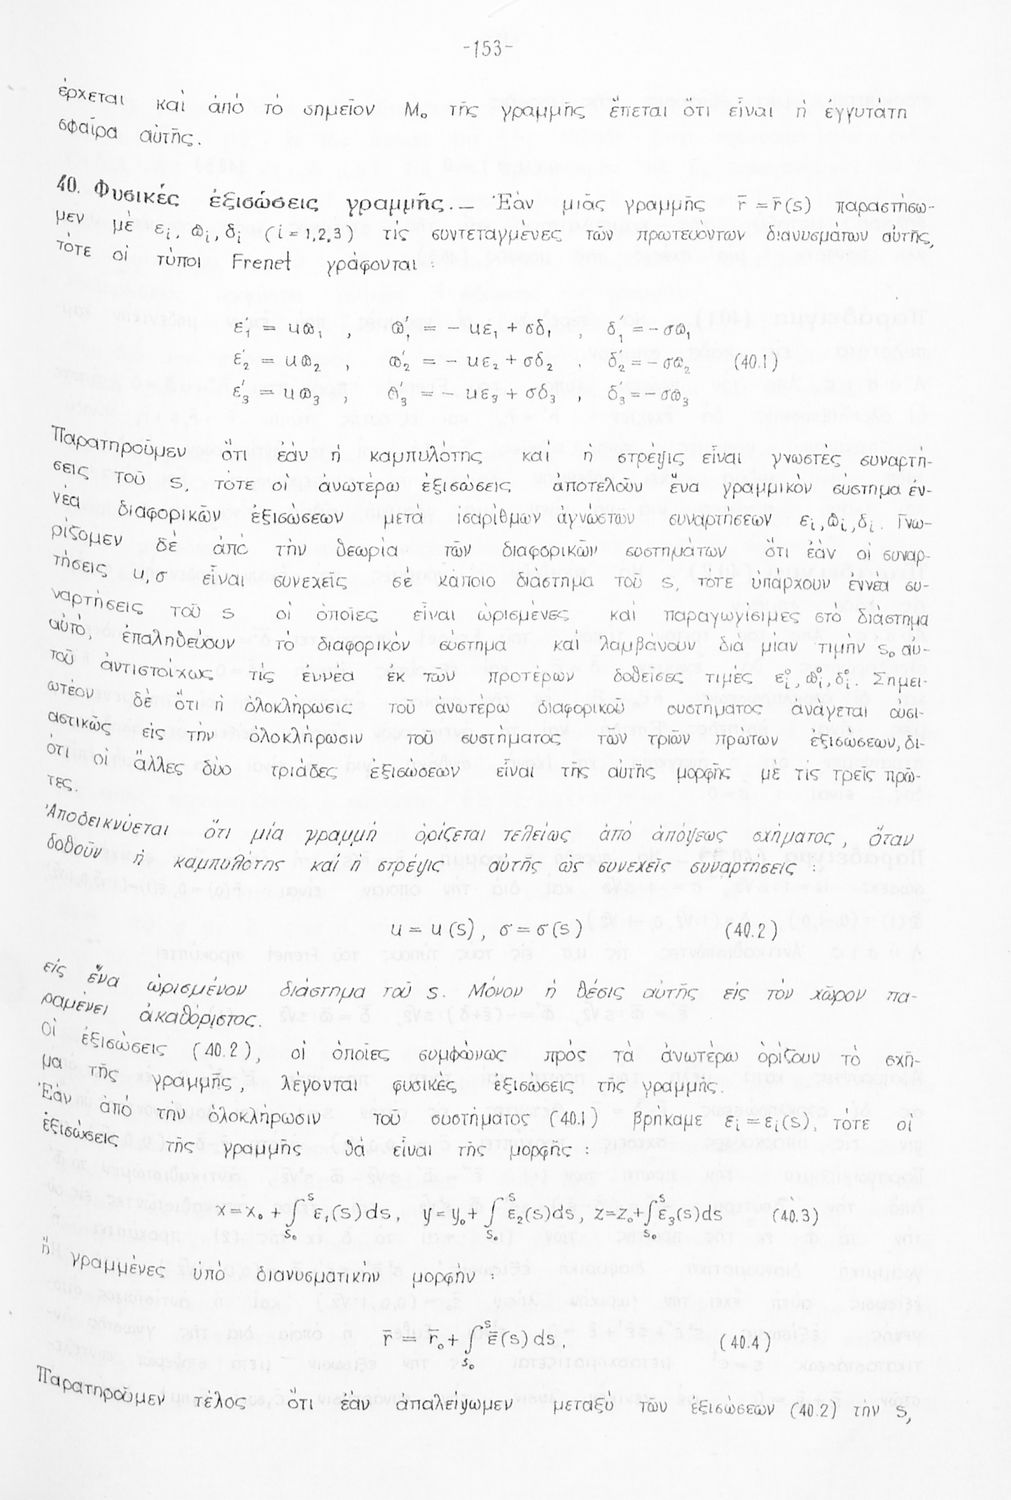 -153-
έρχεται καί ἀπό τό σημεῖον Μ₀ τῆς γραμμῆς ἕπεται ὅτι εἶναι ἡ ἐγγυτάτη
σφαῖρα αὐτῆς.
40. Φυσικές ἐξισώσεις γραμμῆς.— Ἐάν μιᾶς γραμμῆς r̄ = r̄(s) παραστήσω-
μεν μέ εᵢ, ϖᵢ, δᵢ (i = 1,2,3) τίς συντεταγμένες τῶν πρωτευόντων διανυσμάτων αὐτῆς,
τότε οἱ τύποι Frenet γράφονται :
ε₁′ = uϖ₁ , ϖ₁′ = - uε₁ + σδ₁ , δ₁′ = - σϖ₁
ε₂′ = uϖ₂ , ϖ₂′ = - uε₂ + σδ₂ , δ₂′ = - σϖ₂ (40.1)
ε₃′ = uϖ₃ , ϖ₃′ = - uε₃ + σδ₃ , δ₃′ = - σϖ₃
Παρατηροῦμεν ὅτι ἐάν ἡ καμπυλότης καί ἡ στρέψις εἶναι γνωστές συναρτή-
σεις τοῦ s, τότε οἱ ἀνωτέρω ἐξισώσεις ἀποτελοῦν ἕνα γραμμικόν σύστημα ἐν-
νέα διαφορικῶν ἐξισώσεων μετά ἰσαρίθμων ἀγνώστων συναρτήσεων εᵢ, ϖᵢ, δᵢ. Γνω-
ρίζομεν δέ ἀπό τήν θεωρία τῶν διαφορικῶν συστημάτων ὅτι ἐάν οἱ συναρ-
τήσεις u, σ εἶναι συνεχεῖς σέ κάποιο διάστημα τοῦ s, τότε ὑπάρχουν ἐννέα συ-
ναρτήσεις τοῦ s οἱ ὁποῖες εἶναι ὡρισμένες καί παραγωγίσιμες στό διάστημα
αὐτό, ἐπαληθεύουν τό διαφορικόν σύστημα καί λαμβάνουν διά μίαν τιμήν s₀ αὐ-
τοῦ ἀντιστοίχως τίς ἐννέα ἐκ τῶν προτέρων δοθεῖσες τιμές εᵢ⁰, ϖᵢ⁰, δᵢ⁰. Σημει-
ωτέον δέ ὅτι ἡ ὁλοκλήρωσις τοῦ ἀνωτέρω διαφορικοῦ συστήματος ἀνάγεται οὐσι-
αστικῶς εἰς τήν ὁλοκλήρωσιν τοῦ συστήματος τῶν τριῶν πρώτων ἐξισώσεων, δι-
ότι οἱ ἄλλες δύο τριάδες ἐξισώσεων εἶναι τῆς αὐτῆς μορφῆς μέ τίς τρεῖς πρώ-
τες.
Ἀποδεικνύεται ὅτι μία γραμμή ὁρίζεται τελείως ἀπό ἀπόψεως σχήματος, ὅταν
δοθοῦν ἡ καμπυλότης καί ἡ στρέψις αὐτῆς ὡς συνεχεῖς συναρτήσεις :
u = u(s), σ = σ(s) (40.2)
εἰς ἕνα ὡρισμένον διάστημα τοῦ s. Μόνον ἡ θέσις αὐτῆς εἰς τόν χῶρον πα-
ραμένει ἀκαθόριστος.
Οἱ ἐξισώσεις (40.2), οἱ ὁποῖες συμφώνως πρός τά ἀνωτέρω ὁρίζουν τό σχῆ-
μα τῆς γραμμῆς, λέγονται φυσικές ἐξισώσεις τῆς γραμμῆς.
Ἐάν ἀπό τήν ὁλοκλήρωσιν τοῦ συστήματος (40.1) βρήκαμε εᵢ = εᵢ(s), τότε οἱ
ἐξισώσεις τῆς γραμμῆς θά εἶναι τῆς μορφῆς :
x = x₀ + ∫ₛ₀ˢ ε₁(s)ds, y = y₀ + ∫ₛ₀ˢ ε₂(s)ds, z = z₀ + ∫ₛ₀ˢ ε₃(s)ds (40.3)
ἤ γραμμένες ὑπό διανυσματικήν μορφήν :
r̄ = r̄₀ + ∫ₛ₀ˢ ε̄(s)ds, (40.4)
Παρατηροῦμεν τέλος ὅτι ἐάν ἀπαλείψωμεν μεταξύ τῶν ἐξισώσεων (40.2) τήν s,